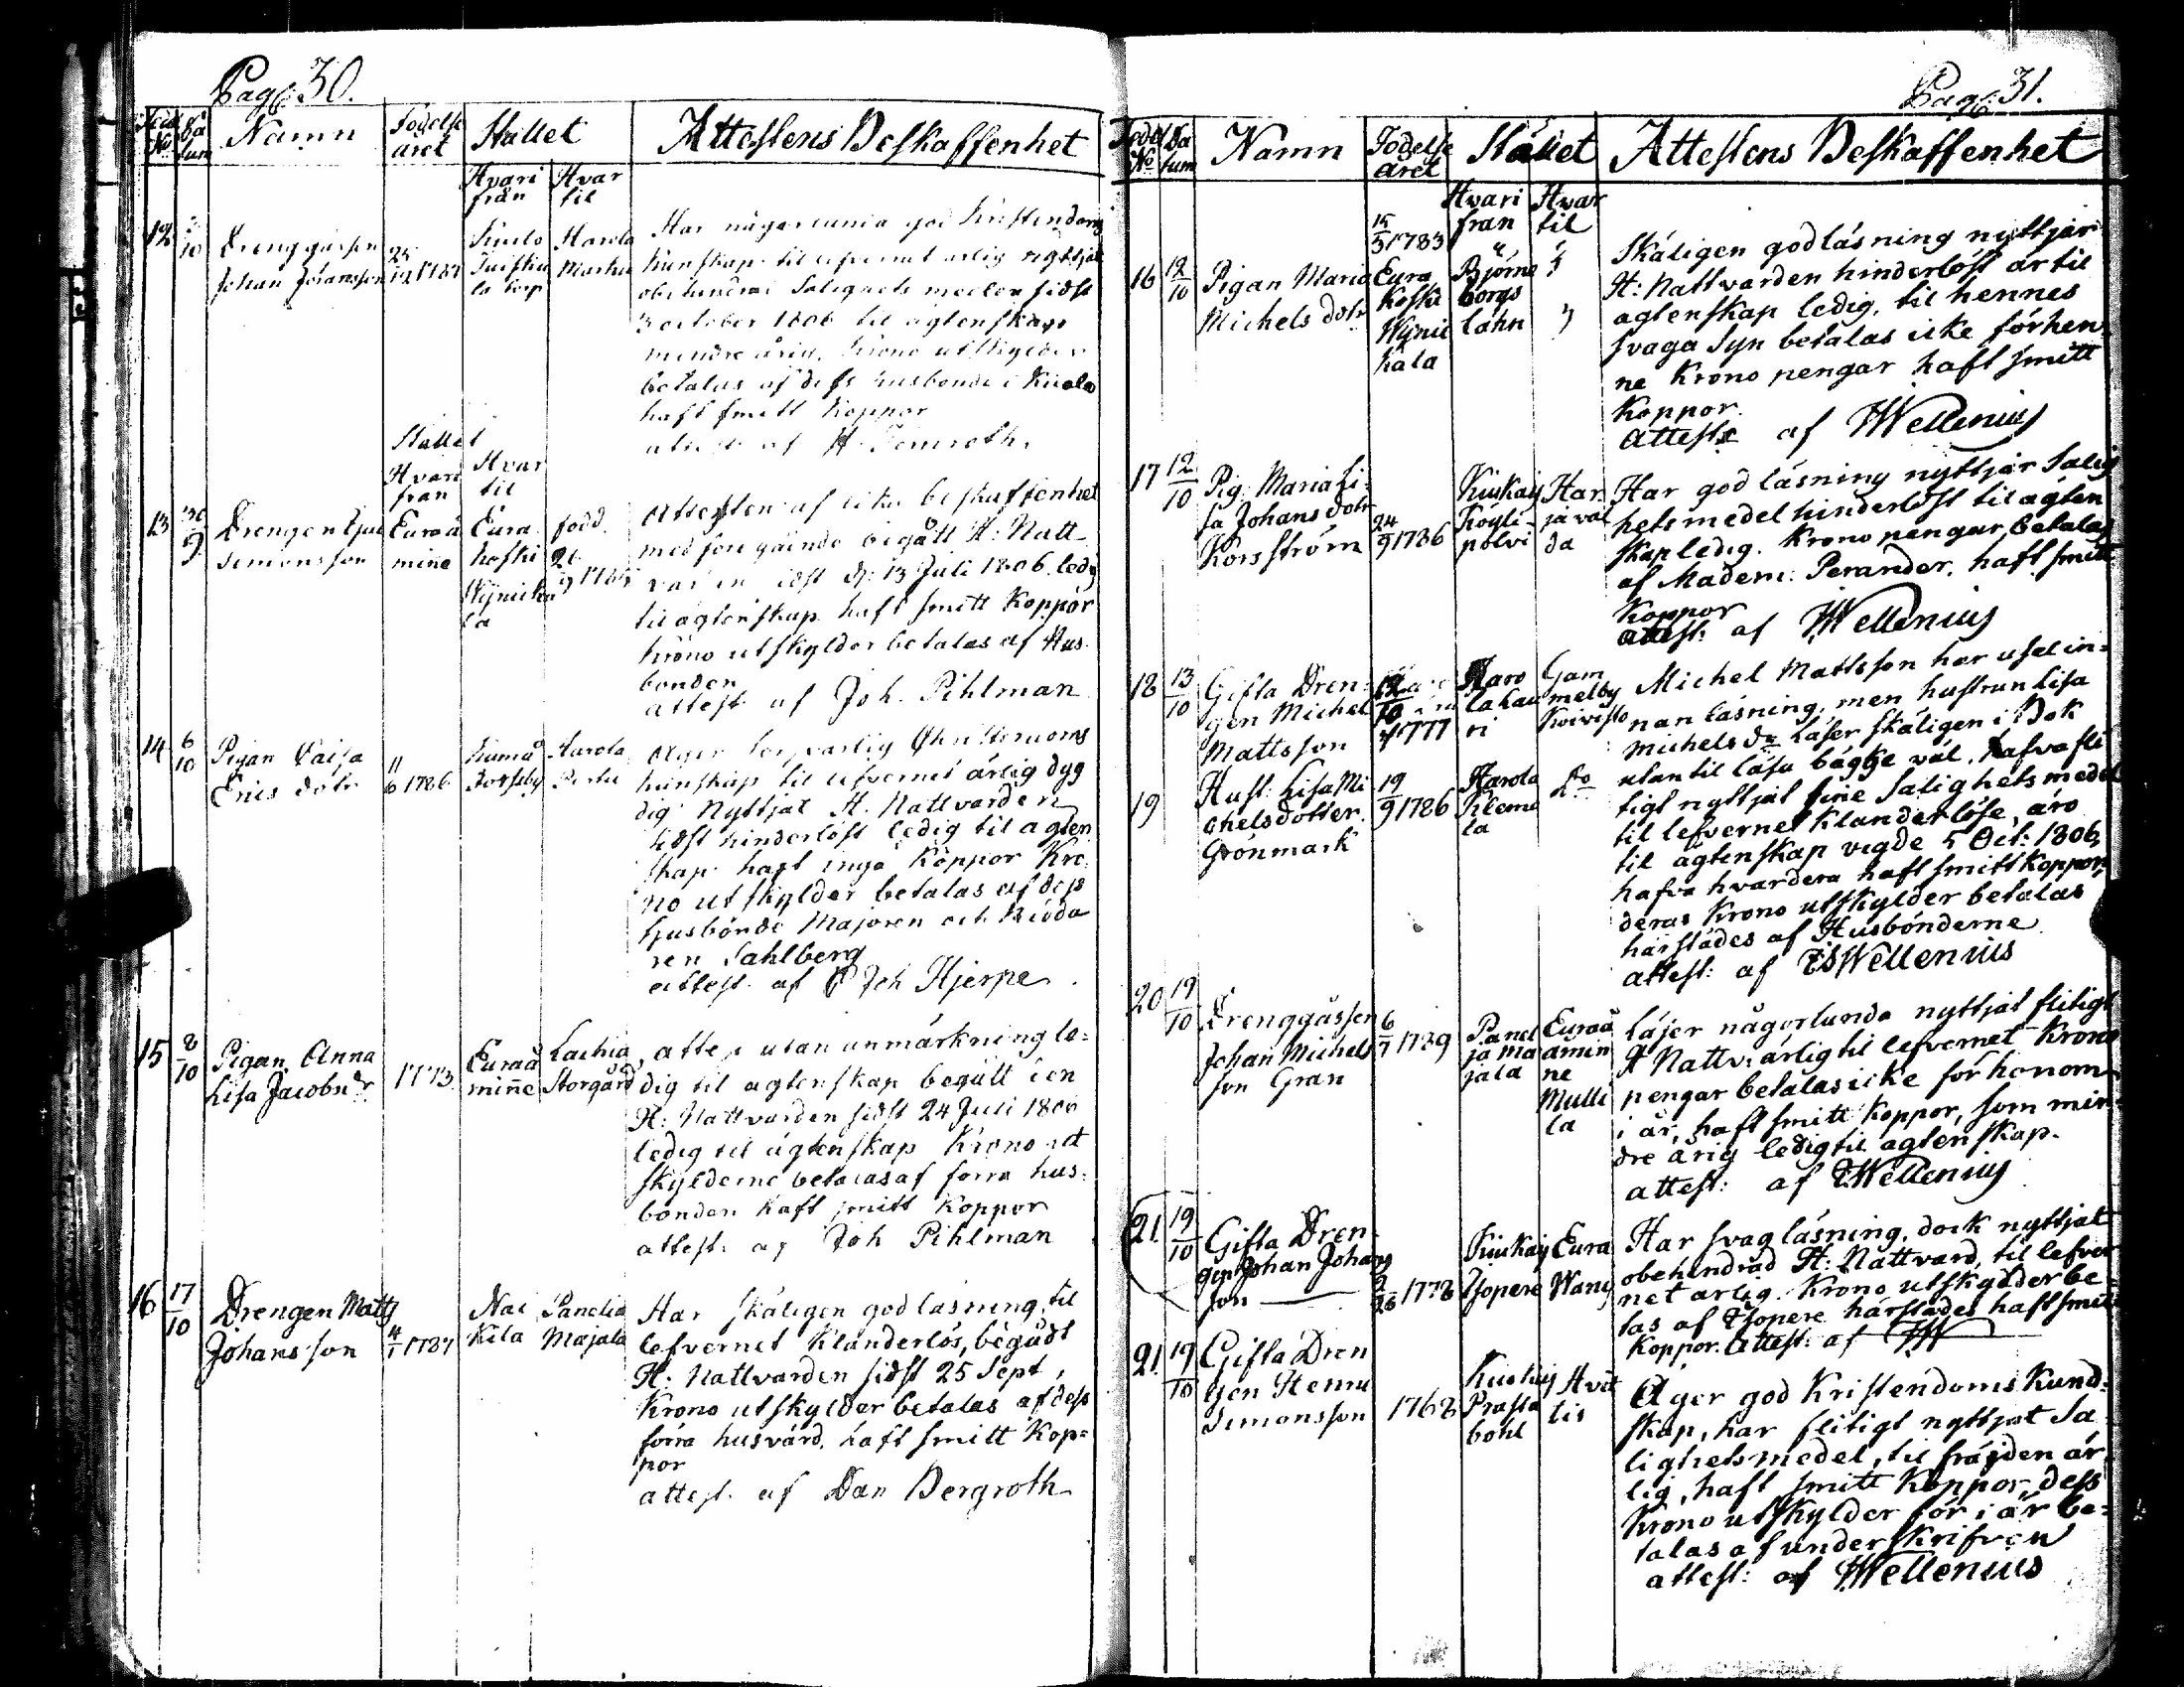 Pag: 30.
Namn
Födelse
året
Stället
Attestens Beskaffenhet
Hvari
från
Hvar
til
12
10
Drenggåssen
Johan Johansson
25
12 1787
Harola
Har någorlunda god Kristendoms
kunskap til lefvernet ärlig nyttjat
obehindrad Salighets medlen sidst
3 october 1806 til ägtenskaps
mindre årig, Krono utskylder
betalas af dess husbonde i Kiuala
haft smitt Koppor
attest af
Stället
Hvari
från
Hvar
til
13
30
9
Drengen
Simonsson
Euraå
mine
Eura
koski
född
26
Attesten af lika beskaffenhet
med föregående begått H: Natt-
varden sidst d: 13 Juli 1806. ledig
til ägtenskap haft smitt Koppor
Krono utskylder betalas af Hus-
bonden
attest af Joh. Pihlman
14
6
10
Pigan Caisa
Erics dotr
11
6 1786
Harola
Äger försvarlig Christendoms
kunskap til lefvernet ärlig dyg
dig Nyttjat H. Nattvarden
sidst hinderlöst ledig til ägten
skap haft inga Koppor Kro
no utskylder betalas af dess
husbonde Majoren och Ridda
ren Sahlberg
attest. af Joh Hjerpe
15
8
10
Pigan Anna
Lisa Jacobs dr
1773
Euraå
mine
Storgård
attest utan anmärkning le=
dig til ägtenskap begått i en
H: Nattvarden sidst 24 Juli 1806
ledig til ägtenskap Krono ut
skylderne betalas af förra hus-
bonden haft smitt Koppor
attest: af Joh Pihlman
16
17
10
Drengen Matts
Johansson
4
1 1787
Nac
kila
Panelia
Majala
Har skäligen god läsning, til
lefvernet klanderlös, begådt
H: Nattvarden sidst 25 Sept,
Krono utskylder betalas af dess
förra husvärd, haft smitt Kop=
por
attest. af Dan Bergroth
Pag: 31.
Namn
Födelse
året
Stället
Attestens Beskaffenhet
Hvari
från
Hvar
til
16
12
10
Pigan Maria
Michels dotr
15
3 1783
Eura
koski
Wynic
kala
Björne
borgs
lähn
Skäligen god läsning nyttjar
H: Nattvarden hinderlöst är til
ägtenskap ledig, til hennes
svaga syn betalas icke för hen
ne Krono pengar haft smitt
Koppor.
attest: af Wellenius
17
12
10
Pig: Maria Li-
sa Johans dotr
Korsström
24
9 1786
Kiukais
Köyli
polvi
Har
javal
da
Har god läsning nyttjar Salig
hets medel hinderlöst til ägten
skap ledig. Krono pengar betalas
af Madem: Perander. haft smitt
Koppor
attest: af Wellenius
18
13
10
Gifta Dren-
gen Michel
Mattsson
1777
Haro
lahau
ri
Gam
melby
Koivisto
Michel Mattsson har usel in-
nan läsning, men hustrun Lisa
Michels dr läser skäligen i Bok
utan til läsa bägge väl. hafva fli
tigt nyttjat sine Salighets medel
til lefvernet klanderlöse, äro
til ägtenskap vigde 5 Oct: 1806,
hafva hvardera haft smitt koppor,
deras Krono utskylder betalas
härstädes af Husbönderne
attest: af Wellenius
19
Hust: Lisa Mi
chelsdotter
Grönmark
19
9 1786
Harola
Kleme
la
Do
20
19
10
Drenggåssen
Johan Michels
son Gran
6
7 1789
Panel
ja Ma
jala
Euraå
amin
ne
Mulli
la
Läser någorlunda nyttjat flitigt
H Nattv: ärlig til lefvernet Krono
pengar betalas icke för honom
i år, haft smitt Koppor, som min-
dre årig ledig til ägtenskap.
attest: af Wellenius
21.
19
10
Gifta Dren-
gen Johan Johans
son
1778
Kiukais
Tsopere
Eura
Wany
Har svag läsning, dock nyttjat
obehindrad H: Nattvard, til lefver
net ärlig. Krono utskylder be-
las af Tsopere härstädes haft smitt
Koppor. Attest: af
21
19
10
Gifta Dren
gen Henric
Simonsson
1768
Kiukais
Prästa
bohl
Hvit
tis
Äger god Kristendoms Kund-
skap, har flitigt nyttjat Sa
lighets medel, til fräjden är
lig, haft smitt Koppor, dess
Krono utskylder för i år be-
talas af underskrifven
attest: af Wellenius